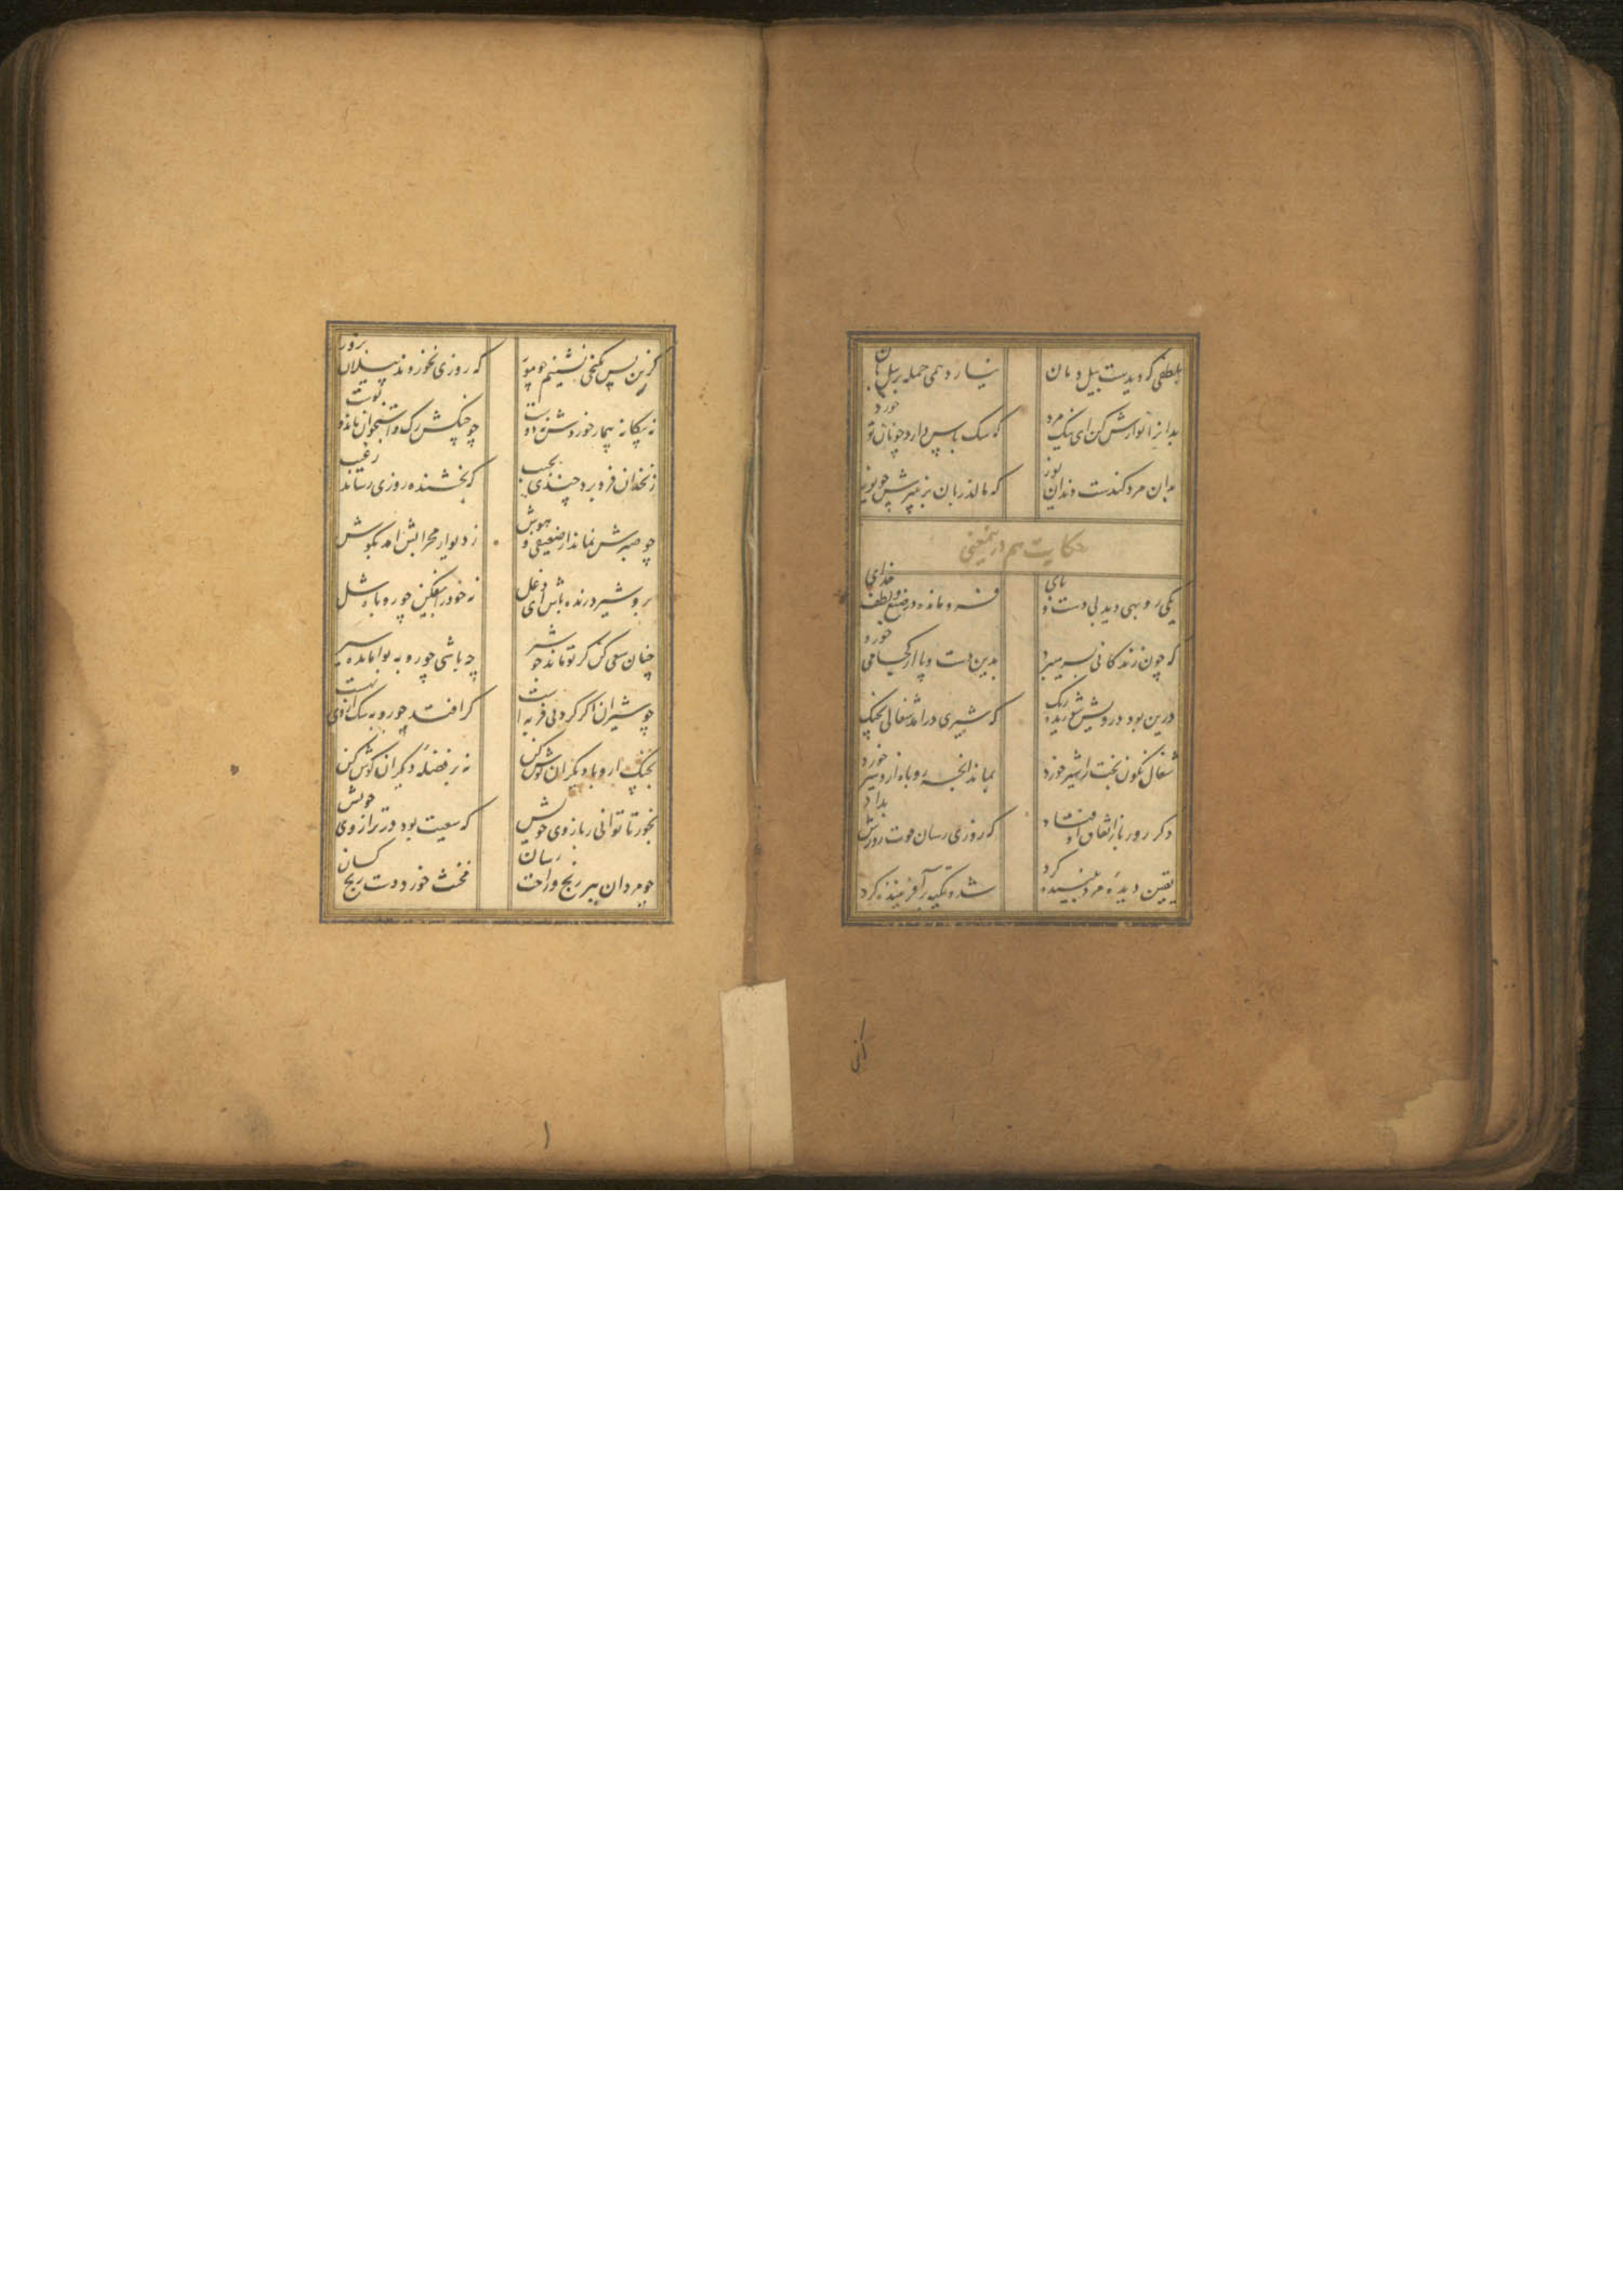 بلطفی که دیدست پیل دمان نیارد همی حمله بر پیل بان
بدانرا نوازش کن ای نیک مرد که سک پاس دارد چو نان تو خورد
بدان مرد کندست دندان یوز که مالد زبان بر پنیرش دو روز
حکایت هم درینمعنی
یکی روبهی دید بی دست و پای فرو مانده در صنع و لطف خدای
که چون زندکانی بسر میبرد بدین دست و پا از کجا می خورد
درین بود درویش شوریده رنک که شیری درامد شغالی بچنک
شغال نکون بخت را شیر خورد بماند انچه روباه ازو سیر خورد
دکر روز باز اتفاق اوفتاد که روزی رسان قوت روزش بداد
یقین دیده مرد بیننده کرد شد و تکیه بر آفریننده کرد
کزین
کزین پس بکنجی نشینم چو مور که روزی نخوردند پیلان بزور
نه بیکانه تیمار خوردش نه دوست چو چنکش رک و استخوان ماند و پوست
زنخدان فرو برد چندی بجیب که بخشنده روزی رساند ز غیب
چو صبرش نماند از ضعیفی و هوش ز دیوار محرابش امد بکوش
برو شیر درنده باش ای دغل نه خود را بیفکن چو روباه شل
چنان سعی کن کز تو ماند چو شیر چه باشی چو روبه بوامانده سیر
چو شیران اکر کردنی فربه است کر افتد چو روبه سک از وی بهست
بچنک ار و با دیکران نوش کن نه بر فضله دیکران کوش کن
بخور تا توانی ز بازوی خویش که سعیت بود در ترازوی خویش
چو مردان ببر رنج و راحت رسان مخنث خورد دست رنج کسان